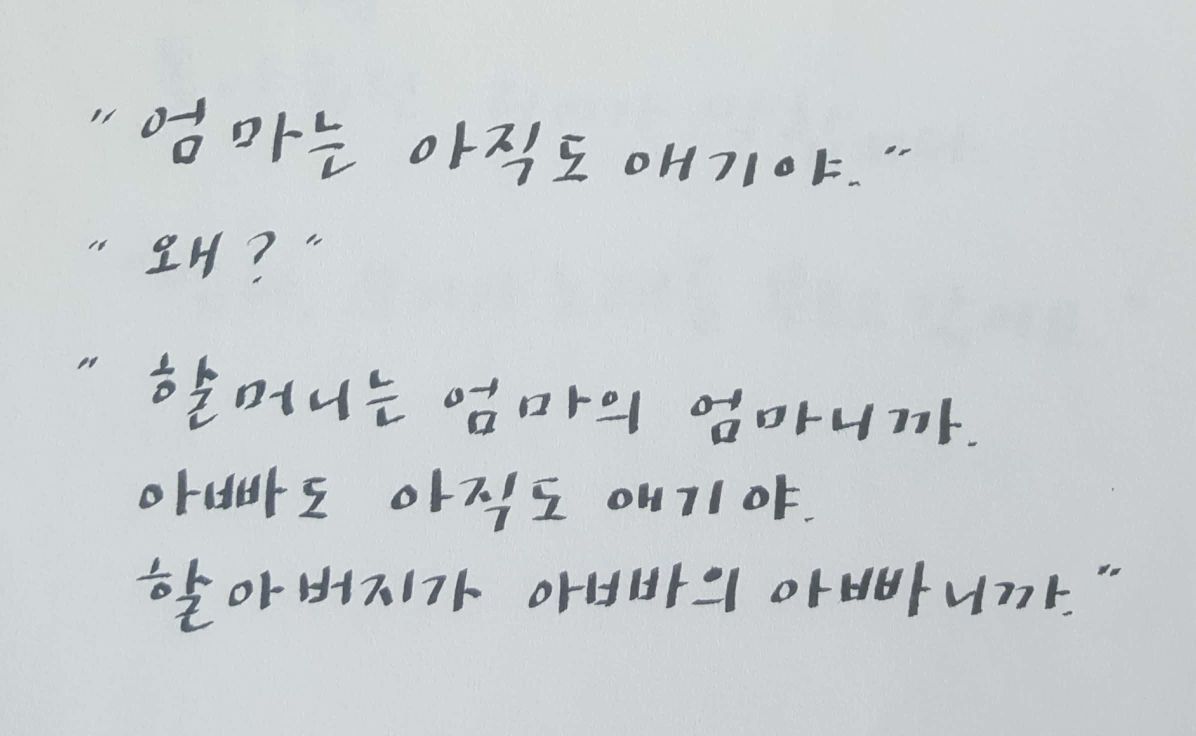 "엄마는 아직도 애기야."
"왜?"
"할머니는 엄마의 엄마니까.
아빠도 아직도 애기야.
할아버지가 아빠의 아빠니까."